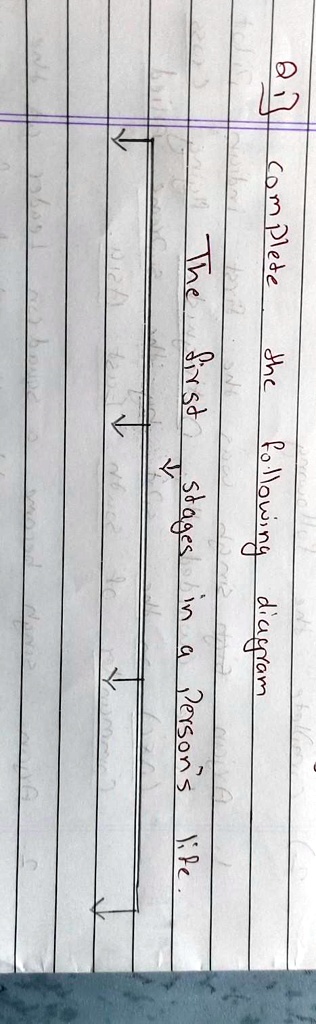 Q1] complete the following diagram
The first stages in a Person's life.